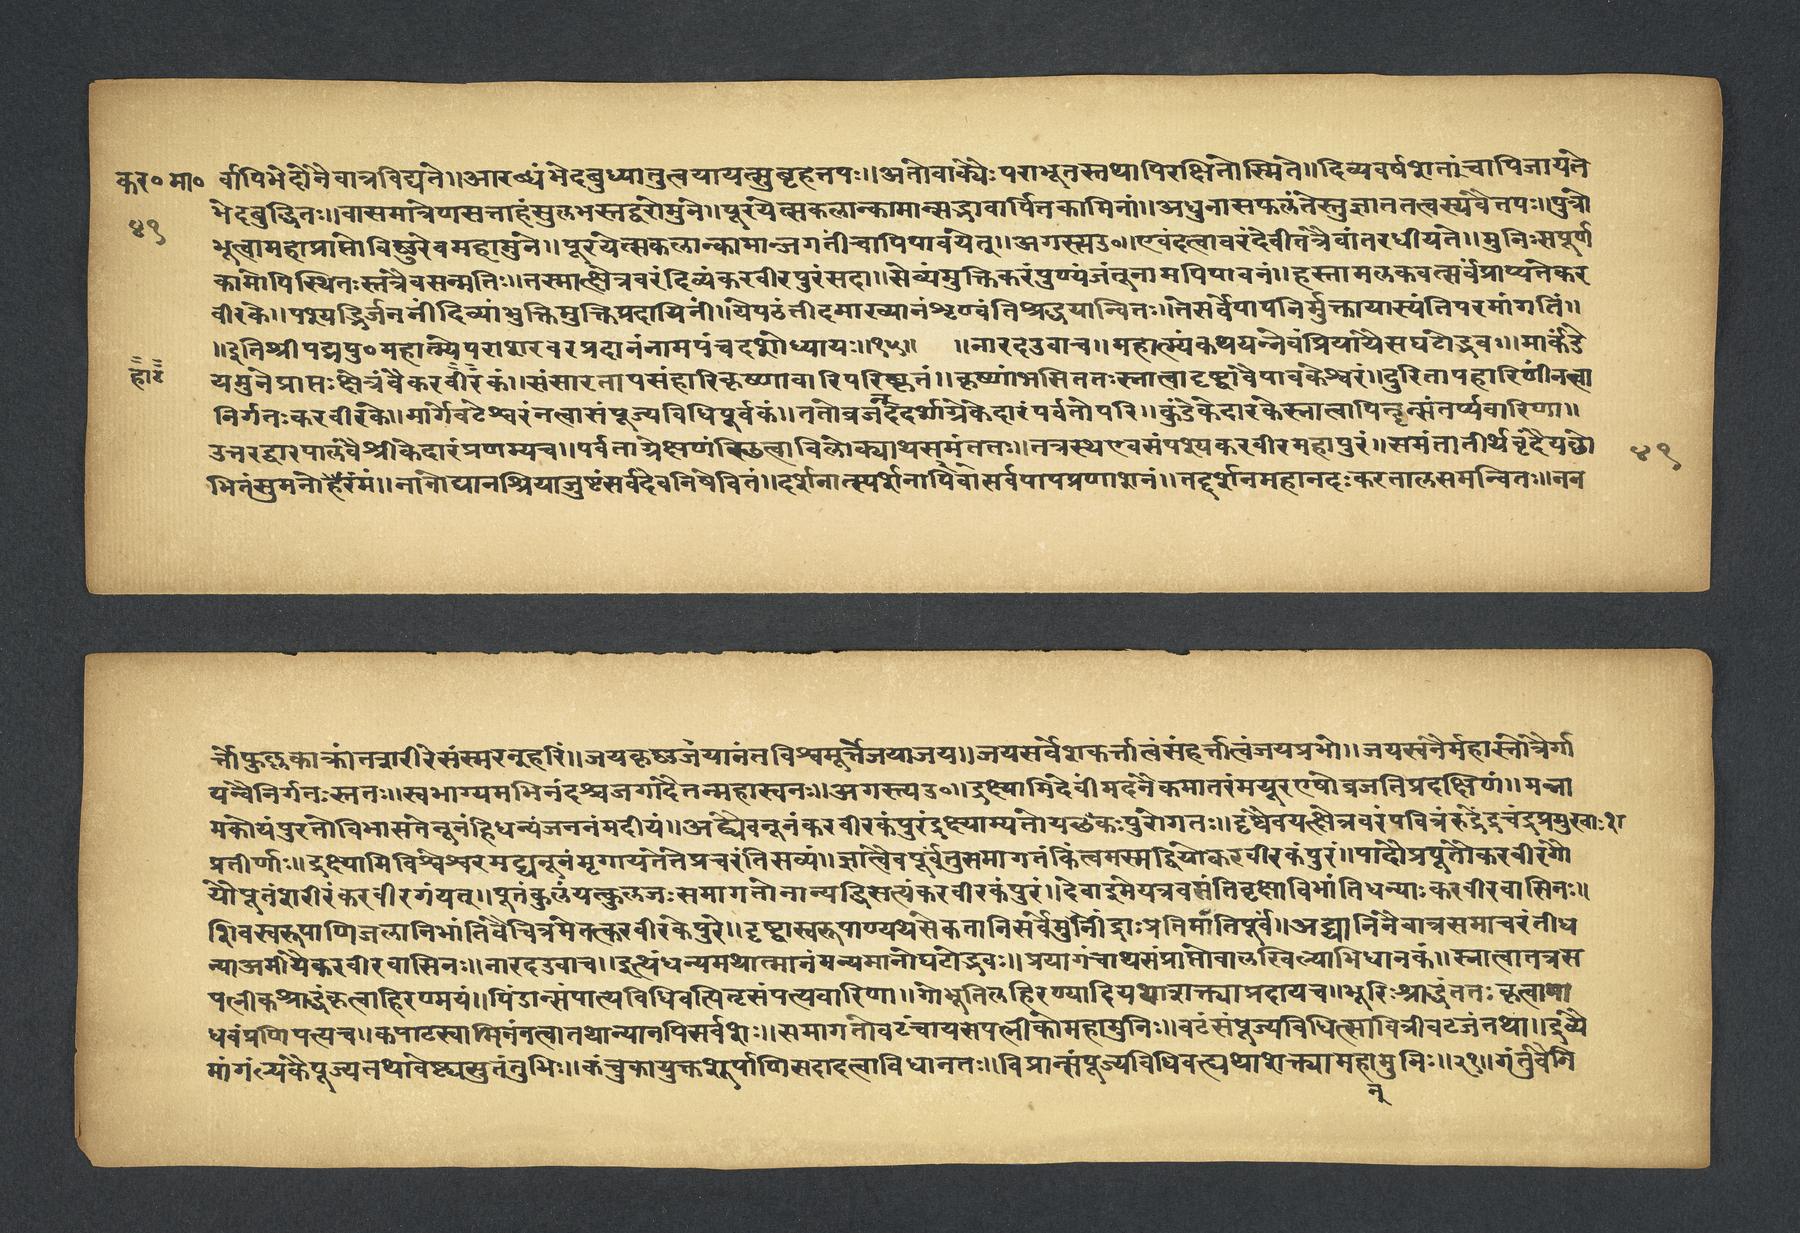 कर० मा० र्वापिभेदोनैवात्रविद्यते॥आरब्धंभेदबुध्यातुत्वयायत्सुबृहत्तपः॥अतोवाक्यैःपराभूतस्तथापिरक्षितोस्मिते॥दिव्यवर्षशतांचापिजायते
४१ भेदबुद्धितः॥वासमात्रेणसत्ताहंसुलभस्तद्वरोमुने॥पूरयेत्सकलान्कामान्मद्भावार्पितकामिनां॥अधुनासफलंतेस्तुज्ञानतत्वस्यवैतपः॥पुत्रो
भूत्वामहाप्राप्तोविष्णुरेवमहामुने॥पूरयेत्सकलान्कामान्जगतींचापिपावयेत्॥अगस्त्यउ०॥एवंदत्वावरंदेवीतत्रैवांतरधीयते॥मुनिःसपूर्ण
कामोपिस्थितःस्तत्रैवसन्मतिः॥तस्मात्क्षेत्रवरंदिव्यंकरवीरपुरंसदा॥सेव्यंमुक्तिकरंपुण्यंजंतूनामपिपावनं॥हस्तामलकवत्सर्वंप्राप्यतेकर
वीरके॥पश्यद्भिर्जननींदिव्यांभुक्तिमुक्तिप्रदायिनीं॥येपठंतीदमाख्यानंशृण्वंतिश्रद्धयान्वितः॥तेसर्वेपापनिर्मुक्तायास्यंतिपरमांगतिं॥
॥इतिश्रीपद्मपु०महात्म्येपराशरवरप्रदानंनामपंचदशोध्यायः॥१५॥ ॥नारदउवाच॥महात्म्यंकथयन्नेवंप्रियायैसघटोद्भवः॥मार्कंडे
हाटं यमुनेप्राप्तःक्षेत्रंवैकरवीरकं॥संसारतापसंहारिकृष्णावारिपरिप्लुतं॥कृष्णांभसिततःस्नात्वादृष्ट्वावैपावकेश्वरं॥दुरितापहारिणींनत्वा
निर्गतःकरवीरके॥मार्गेवटेश्वरंनत्वासंपूज्यविधिपूर्वकं॥ततोव्रजन्ददर्शाग्रेकेदारंपर्वतोपरि॥कुंडेकेदारकेस्नात्वापितॄन्संतर्प्यवारिणा॥
उत्तरद्वारपालंवैश्रीकेदारंप्रणम्यच॥पर्वताग्रेक्षणंस्थित्वाविलोक्याथसमंततः॥तत्रस्थएवसंपश्यकरवीरमहापुरं॥समंतातीर्थवृंदैयछो
४१
भितंसुमनोहरंमं॥नानोद्यानश्रियाजुष्टंसर्वदेवनिषेवितं॥दर्शनात्स्पर्शनाद्वापिसर्वपापप्रणाशनं॥तद्दर्शनमहानदःकरतालसमन्वितः॥नन
र्त्तोफुल्लकाक्रांतशरीरेसंस्मरन्हरिं॥जयकृष्णजयानंतविश्वमूर्त्तेजयाजय॥जयसर्वेशकर्त्तात्वंसंहर्त्तात्वंजयप्रभो॥जयस्वनैर्महास्तोत्रैर्गा
यंश्चैनिर्गतःस्ततः॥स्वभाग्यमभिनंदश्चजगादैतन्महास्वनः॥अगस्त्यउ०॥द्रक्ष्यामिदेवींमदनैकमातरंमयूरएषोव्रजतिप्रदक्षिणं॥मन्ना
मकोयंपुरतोविभासतेनूनंहिधन्यंजननंमदीयं॥अद्यैवनूनंकरवीरकंपुरंद्रक्ष्याम्यतोयछकःपुरोगतः॥दृष्ट्वैवयत्क्षेत्रवरंपवित्रंरुद्रेंद्रचंद्रप्रमुखाः
प्रतीर्णाः॥द्रक्ष्यामिविश्वेश्वरमद्यनूनंमृगायतेतेप्रचरंतिसव्यं॥ज्ञात्वैवपूर्वंतुसमागतंकिंत्वमस्मद्वियोकरवीरकंपुरं॥पादौप्रपूतौकरवीरगौ
यौपूतंशरीरंकरवीरगंयत्॥पूतंकुलंयत्कुलजःसमागतोनान्यद्धिसत्यंकरवीरकंपुरं॥देवाद्रुमेयत्रवसंतिवृक्षाविभांतिधन्याःकरवीरवासिनः॥
शिवस्वरूपाणिजलानिभांतिवैचित्रमेतत्करवीरकेपुरे॥दृष्ट्वास्वरूपाण्यथसैकतानिसर्वेमुनींद्राःप्रतिभांतिपूर्वं॥अद्यानिनैवात्रसमाचरंतीध
न्याअमीयैकरवीरवासिनः॥नारदउवाच॥इत्थंधन्यमथात्मानंमन्यमानोघटोद्भवः॥प्रयागंचाथसंप्राप्तोवालखिल्याभिधानकं॥स्नात्वातत्रस
पत्नीकश्राद्धंकृत्वाहिरण्मयं॥पिंडान्संपात्यविधिवत्पितॄसंपत्यवारिणा॥गोभूतिलहिरण्यादियथाशक्त्याप्रदायच॥भूरिःश्राद्धंततःकृत्वामा
धवंप्रणिपत्यच॥कपाटस्वामिनंनत्वातथान्यानपिसर्वशः॥समागतोवटंचायसपत्नीकोमहामुनिः॥वटंसंपूज्यविधित्सावित्रीवटजंतथा॥द्रव्यै
मांगल्यकैपूज्यतथावेष्ट्यसुतंतुभिः॥कंचुकायुक्तशूर्पाणिसदादत्वाविधानतः॥विप्रान्संपूज्यविधिवद्यथाशक्त्यामहामुनिः॥२१॥गंतुंवैशि
नु